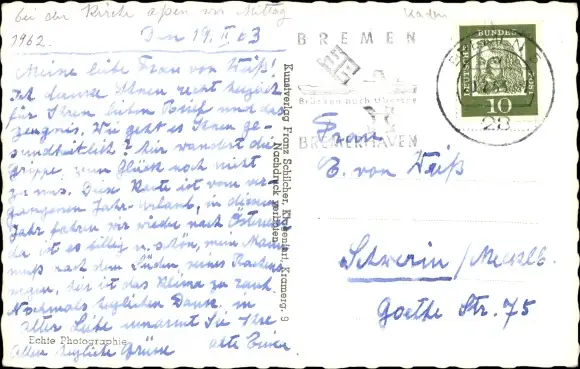 bei der Kirche assen wir Mittag
1962.
Den 19. II 63
Meine liebe Frau von Weiß!
Ich danke Ihnen recht herzlich
für Ihren lieben Brief und das
zeugnis. Wie geht es Ihnen ge-
sundheitlich? hier wandert die
Grippe, zum Glück noch nicht
zu uns. Diese Karte ist vom ver-
gangenen Jahr-Urlaub, in diesem
Jahr fahren wir wieder nach Österrei
da ist es billig u. schön, mein Mann
muß nach dem Süden, seines Rachens
wegen, hier ist das Klima zu rauh
Nochmals herzlichen Dank, in
alter Liebe umarmt Sie Ihre
alte
Allen herzliche Grüsse
Echte Photographie
Kunstverlag Franz Schilcher, Klagenfurt, Kramerg. 9
Nachdruck verboten
BREMEN
Brücken nach Übersee
BREMERHAVEN
DEUTSCHE BUNDESPOST
10
23
Frau
E. von Weiß
Schwerin / Mecklb.
Goethe Str. 75